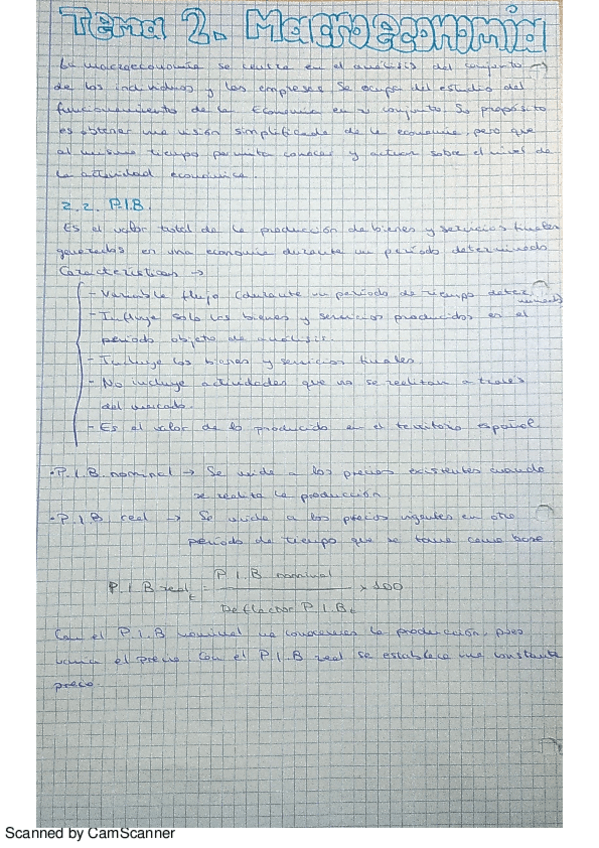 Tema 2. Macroeconomía
La macroeconomía se centra en el análisis del conjunto
de los individuos y las empresas. Se ocupa del estudio del
funcionamiento de la Economía en su conjunto. Su propósito
es obtener una visión simplificada de la economía, pero que
al mismo tiempo permita conocer y actuar sobre el nivel de
la actividad económica.
2.2. P.I.B.
Es el valor total de la producción de bienes y servicios finales
generados en una economía durante un período determinado
Características →
- Variable flujo (durante un período de tiempo determinado)
- Incluye solo los bienes y servicios producidos en el
período objeto de análisis.
- Incluye los bienes y servicios finales
- No incluye actividades que no se realizan a través
del mercado.
- Es el valor de lo producido en el territorio español
· P.I.B. nominal → Se mide a los precios existentes cuando
se realiza la producción
· P.I.B real → Se mide a los precios vigentes en otro
período de tiempo que se toma como base
P.I.B real t = P.I.B nominal / Deflactor P.I.B t × 100
Con el P.I.B nominal no conocemos la producción, pues
varía el precio. Con el P.I.B real se establece una constante
precio.
Scanned by CamScanner